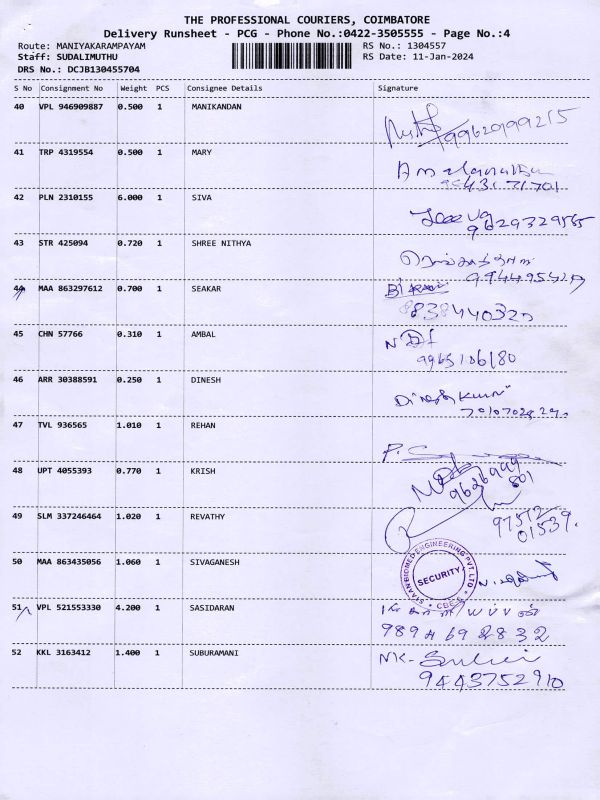 THE PROFESSIONAL COURIERS, COIMBATORE
Delivery Runsheet - PCG - Phone No.:0422-3505555 - Page No.:4
Route: MANIYAKARAMPAYAM RS No.: 1304557
Staff: SUDALIMUTHU RS Date: 11-Jan-2024
DRS No.: DCJB130455704
S No Consignment No Weight PCS Consignee Details Signature
40 VPL 946909887 0.500 1 MANIKANDAN
9962999215
41 TRP 4319554 0.500 1 MARY
42 PLN 2310155 6.000 1 SIVA
9629329585
43 STR 425094 0.720 1 SHREE NITHYA
44 MAA 863297612 0.700 1 SEAKAR
8838440320
45 CHN 57766 0.310 1 AMBAL
9965106180
46 ARR 30388591 0.250 1 DINESH
Dineshkumar
47 TVL 936565 1.010 1 REHAN
48 UPT 4055393 0.770 1 KRISH
9626999
801
49 SLM 337246464 1.020 1 REVATHY
97572
01539.
50 MAA 863435056 1.060 1 SIVAGANESH
STAAN BIOMED ENGINEERING PVT. LTD
SECURITY
51 VPL 521553330 4.200 1 SASIDARAN
52 KKL 3163412 1.400 1 SUBURAMANI
9443752910